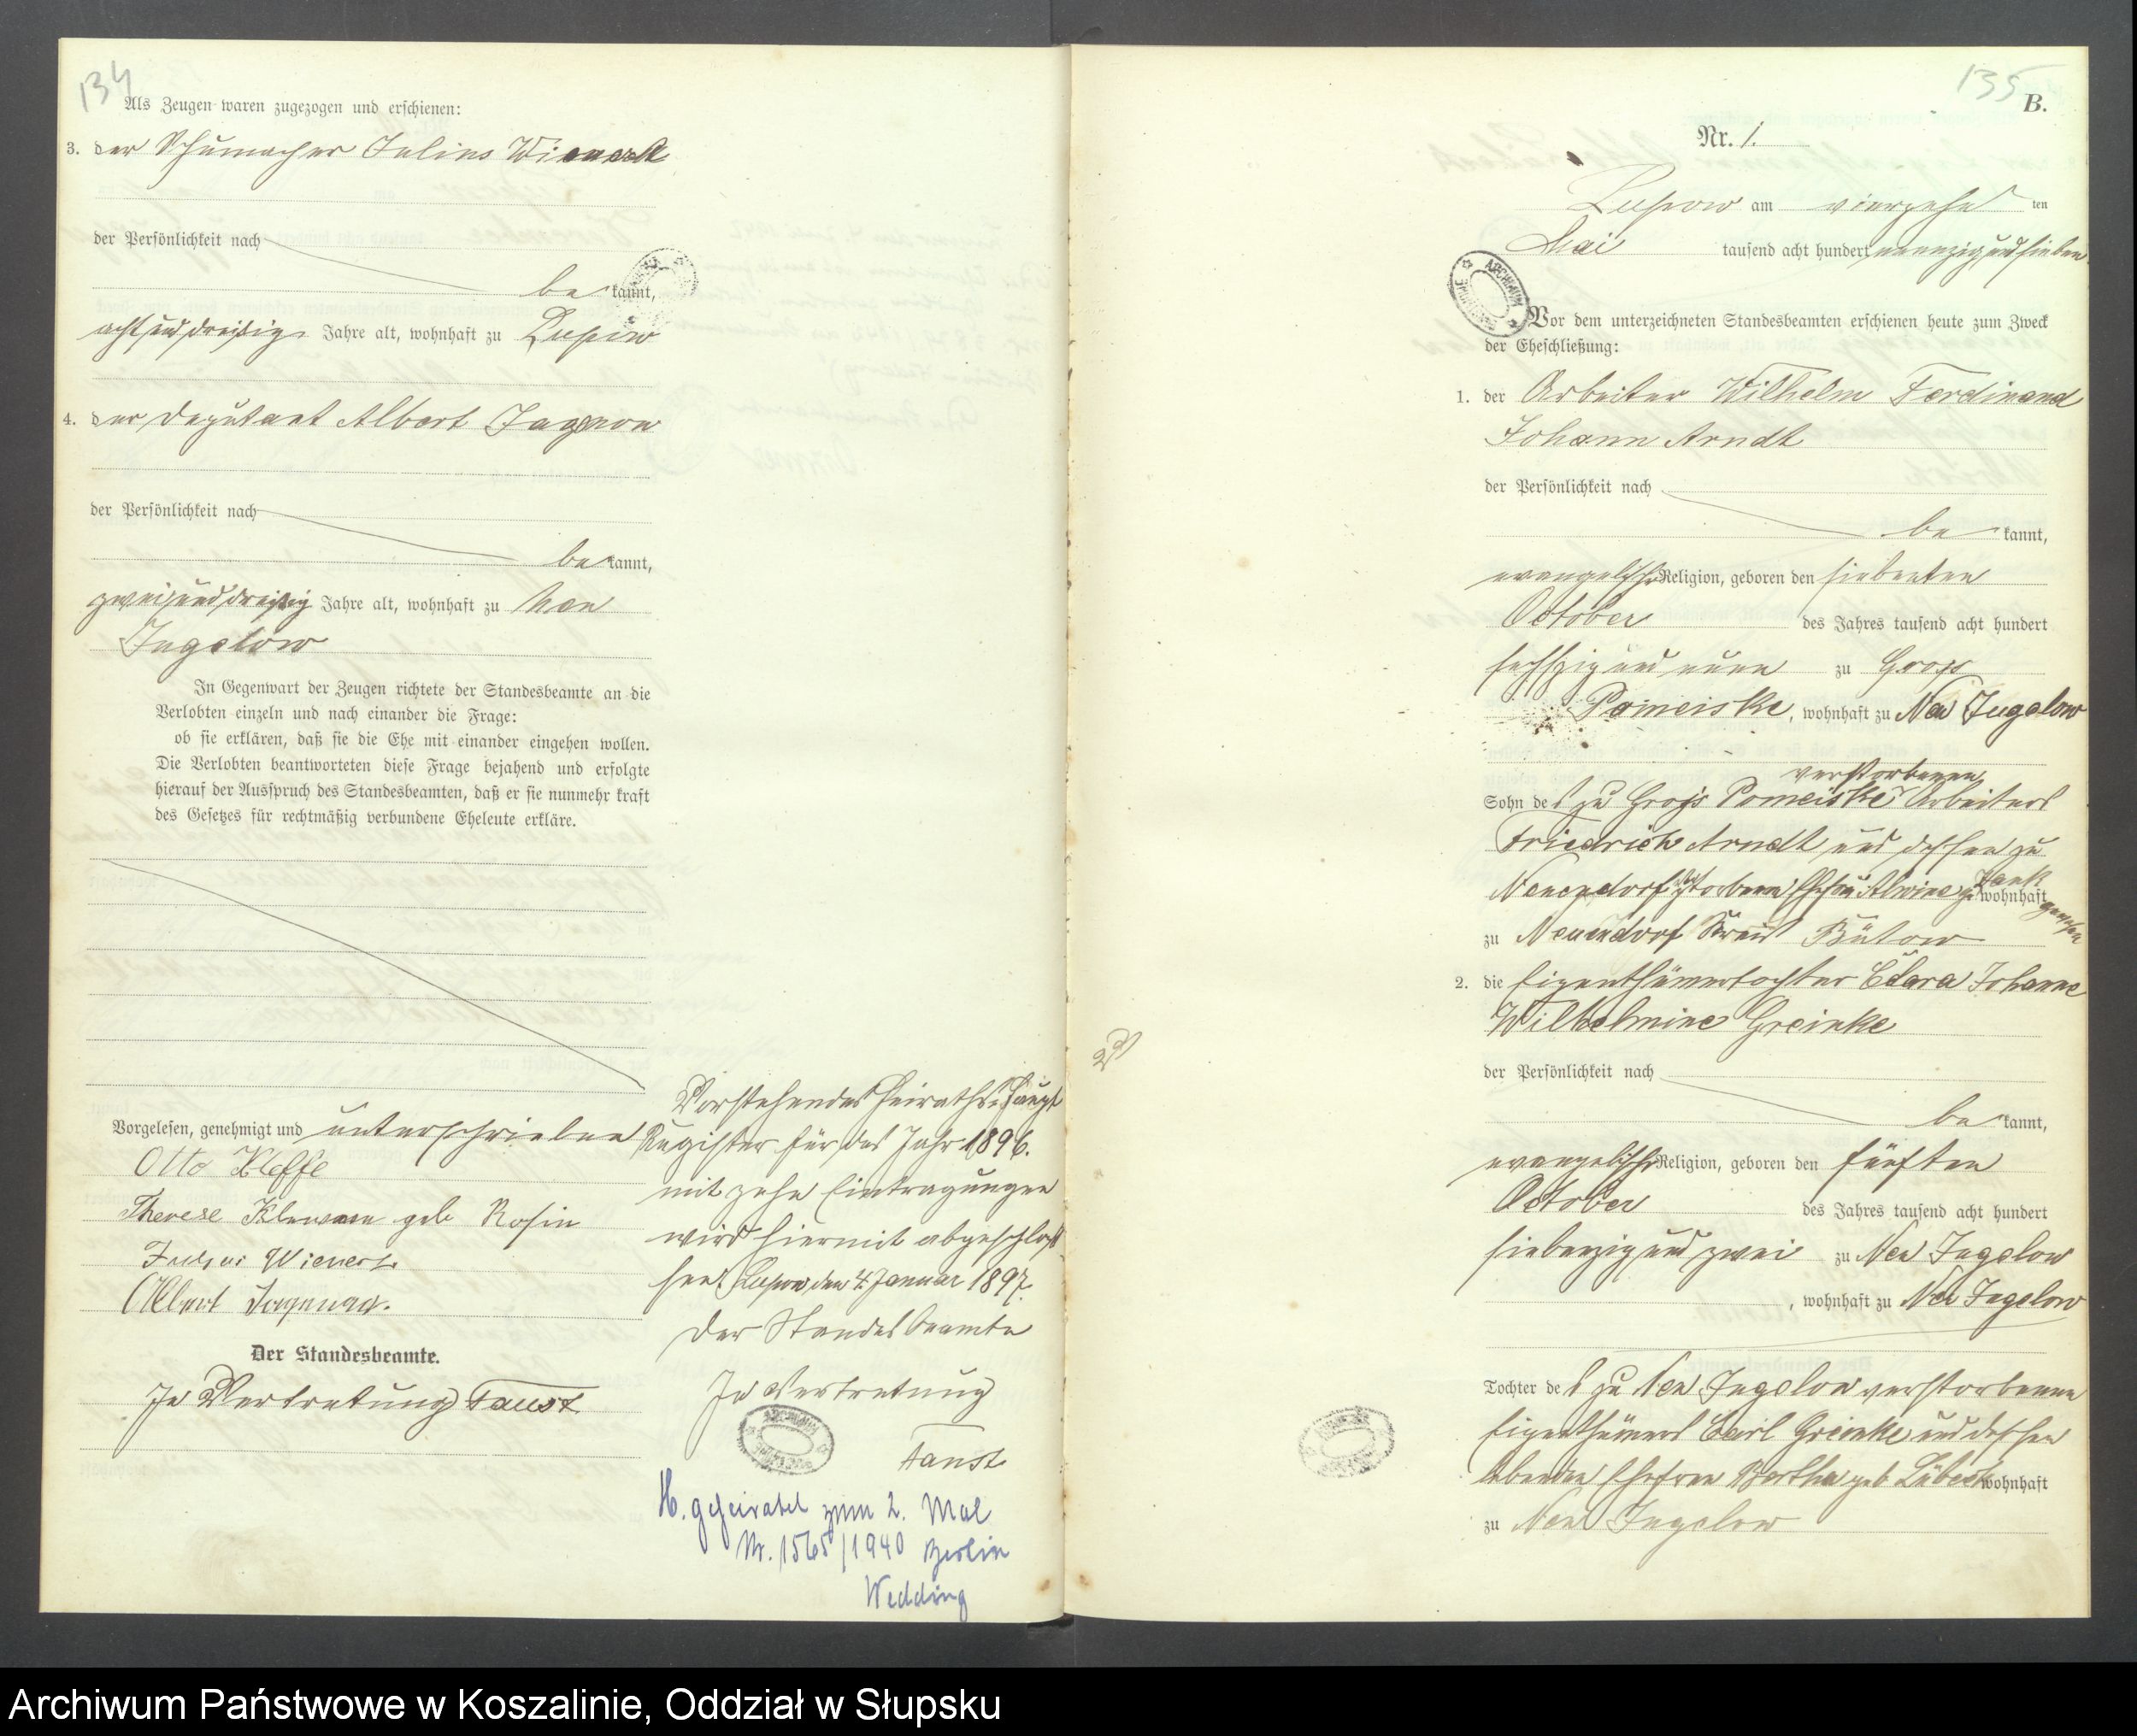 134
Als Zeugen waren zugezogen und erschienen:
3. der Schumacher Julius Wienert
der Persönlichkeit nach
be kannt,
acht und dreißig Jahre alt, wohnhaft zu Lupow
4. der Deputant Albert
der Persönlichkeit nach
be kannt,
zwei und dreißig Jahre alt, wohnhaft zu Neu
Jugelow
In Gegenwart der Zeugen richtete der Standesbeamte an die
Verlobten einzeln und nach einander die Frage:
ob sie erklären, daß sie die Ehe mit einander eingehen wollen.
Die Verlobten beantworteten diese Frage bejahend und erfolgte
hierauf der Ausspruch des Standesbeamten, daß er sie nunmehr kraft
des Gesetzes für rechtmäßig verbundene Eheleute erkläre.
Vorgelesen, genehmigt und unterschrieben
Otto
Therese geb Rosin
Julius Wienert
Albert
Der Standesbeamte.
In Vertretung Faust
Vorstehendes Heiraths-Haupt
Register für das Jahr 1896.
mit zehn Eintragungen
wird hiermit abgeschlos-
sen. Lupow, den 4. Januar 1897.
Der Standesbeamte
In Vertretung
Faust
H. geheiratet zum 2. Mal
Nr. 1565/1940 Berlin
Wedding
135
B.
Nr. 1.
Lupow am vierzehn ten
Mai tausend acht hundert neunzig und sieben
Vor dem unterzeichneten Standesbeamten erschienen heute zum Zweck
der Eheschließung:
1. der Arbeiter Wilhelm Ferdinand
Johann Arndt
der Persönlichkeit nach
be kannt,
evangelischer Religion, geboren den siebenten
October des Jahres tausend acht hundert
sechszig und neun zu Gross
Pomeiske, wohnhaft zu Neu Jugelow
verstorbenen
Sohn des zu Gross Pomeiske Arbeiters
Friedrich Arndt und dessen zu
Neuendorf verstorbenen Ehefrau Alwine geb wohnhaft
gewesen
zu Neuendorf Kreis Bütow
2. die Eigenthümertochter Clara Johanne
Wilhelmine Greinke
der Persönlichkeit nach
be kannt,
evangelischer Religion, geboren den fünften
October des Jahres tausend acht hundert
siebenzig und zwei zu Neu Jugelow
, wohnhaft zu Neu Jugelow
Tochter des zu Neu Jugelow verstorbenen
Eigenthümers Carl Greinke und dessen
lebenden Ehefrau Bertha geb Lübeck wohnhaft
zu Neu Jugelow
Archiwum Państwowe w Koszalinie, Oddział w Słupsku